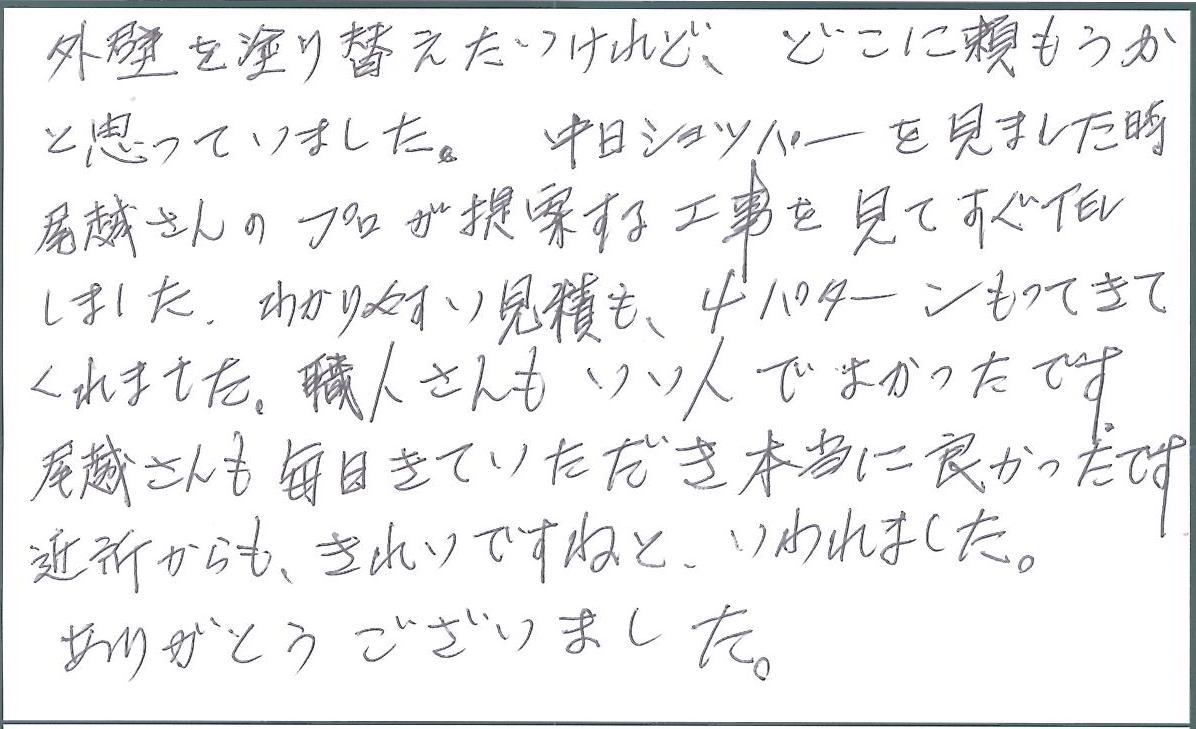 外壁を塗り替えたいけれど、どこに頼もうか
と思っていました。 中日ショッパーを見ました時
尾越さんのプロが提案する工事を見てすぐTEL
しました。わかりやすい見積も、4パターンもってきて
くれました。職人さんもいい人でよかったです
尾越さんも毎日きていただき本当に良かったです
近所からも、きれいですねと、いわれました。
ありがとうございました。